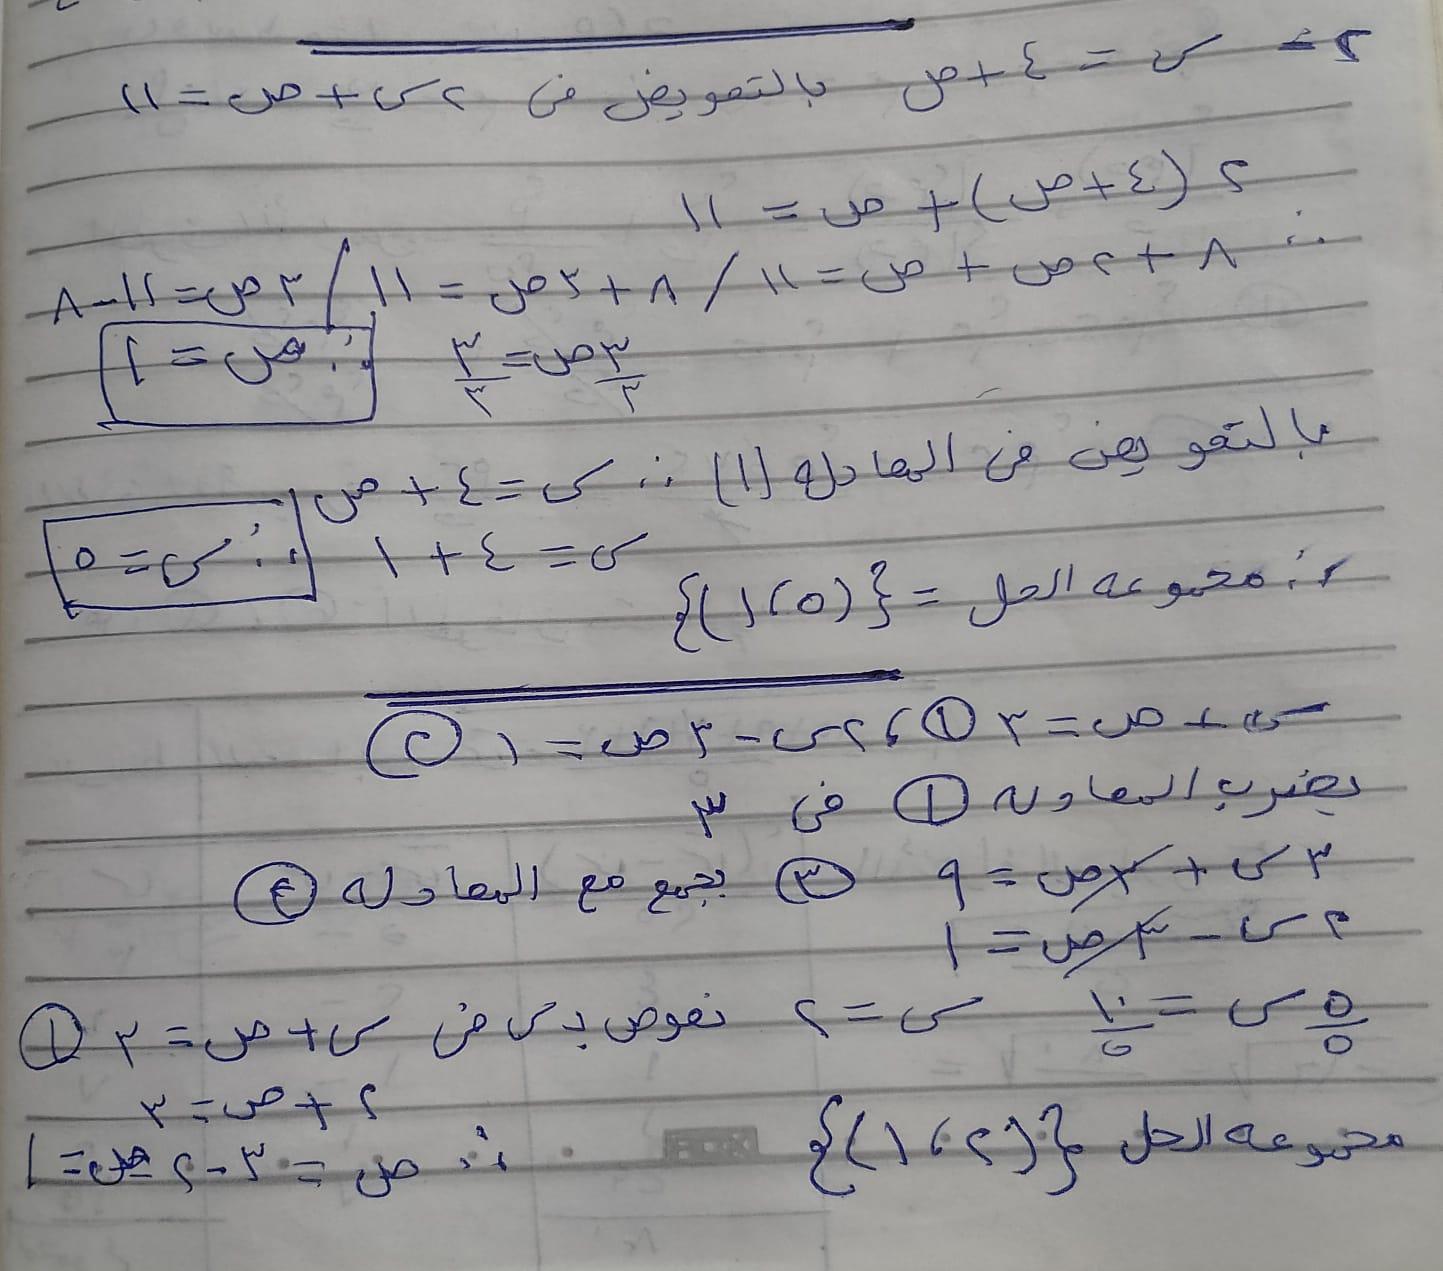 ٢- س = ٤ + ص بالتعويض فى ٢س + ص = ١١
٢ (٤ + ص) + ص = ١١
∴ ٨ + ٢ص + ص = ١١ / ٨ + ٣ص = ١١ / ٣ص = ١١ - ٨
٣ص/٣ = ٣/٣ ∴ ص = ١
بالتعويض فى المعادلة (١) ∴ س = ٤ + ص
س = ٤ + ١ ∴ س = ٥
∴ مجموعه الحل = {(٥، ١)}
س + ص = ٣ ① ، ٢س - ٣ص = ١ ②
بضرب المعادله ① فى ٣
٣س + ٣ص = ٩ ③ بجمع مع المعادله ②
٢س - ٣ص = ١
٥س/٥ = ١٠/٥ س = ٢ نعوض بـ س فى س + ص = ٣ ①
٢ + ص = ٣
مجموعه الحل {(٢، ١)} ∴ ص = ٣ - ٢ ص = ١